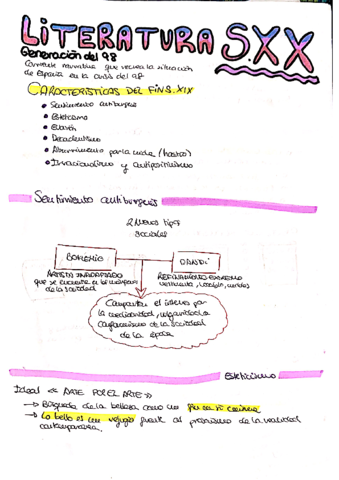 LITERATURA S.XX
Generación del 98
Corriente narrativa que recrea la situación
de España en la crisis del 98
CARACTERÍSTICAS DEL FIN S. XIX
• Sentimiento antiburgués
• Esteticismo
• Evasión
• Decadentismo
• Aburrimiento por la vida (hastío)
• Irracionalismo y antipositivismo
Sentimiento antiburgués
2 Nuevos tipos
sociales
BOHEMIO
DANDI
ARTISTA INADAPTADO
que se encuentra al margen
de la sociedad
REFINAMIENTO EXTREMO
vestimenta, modales
Comparten el
por
la mediocridad, vulgaridad, y
conformismo de la sociedad
de la época
Esteticismo
Ideal << ARTE POR EL ARTE >>
→ Búsqueda de la belleza como un fin en sí misma
→ Lo bello es un refugio frente al prosaísmo de la realidad
contemporánea.